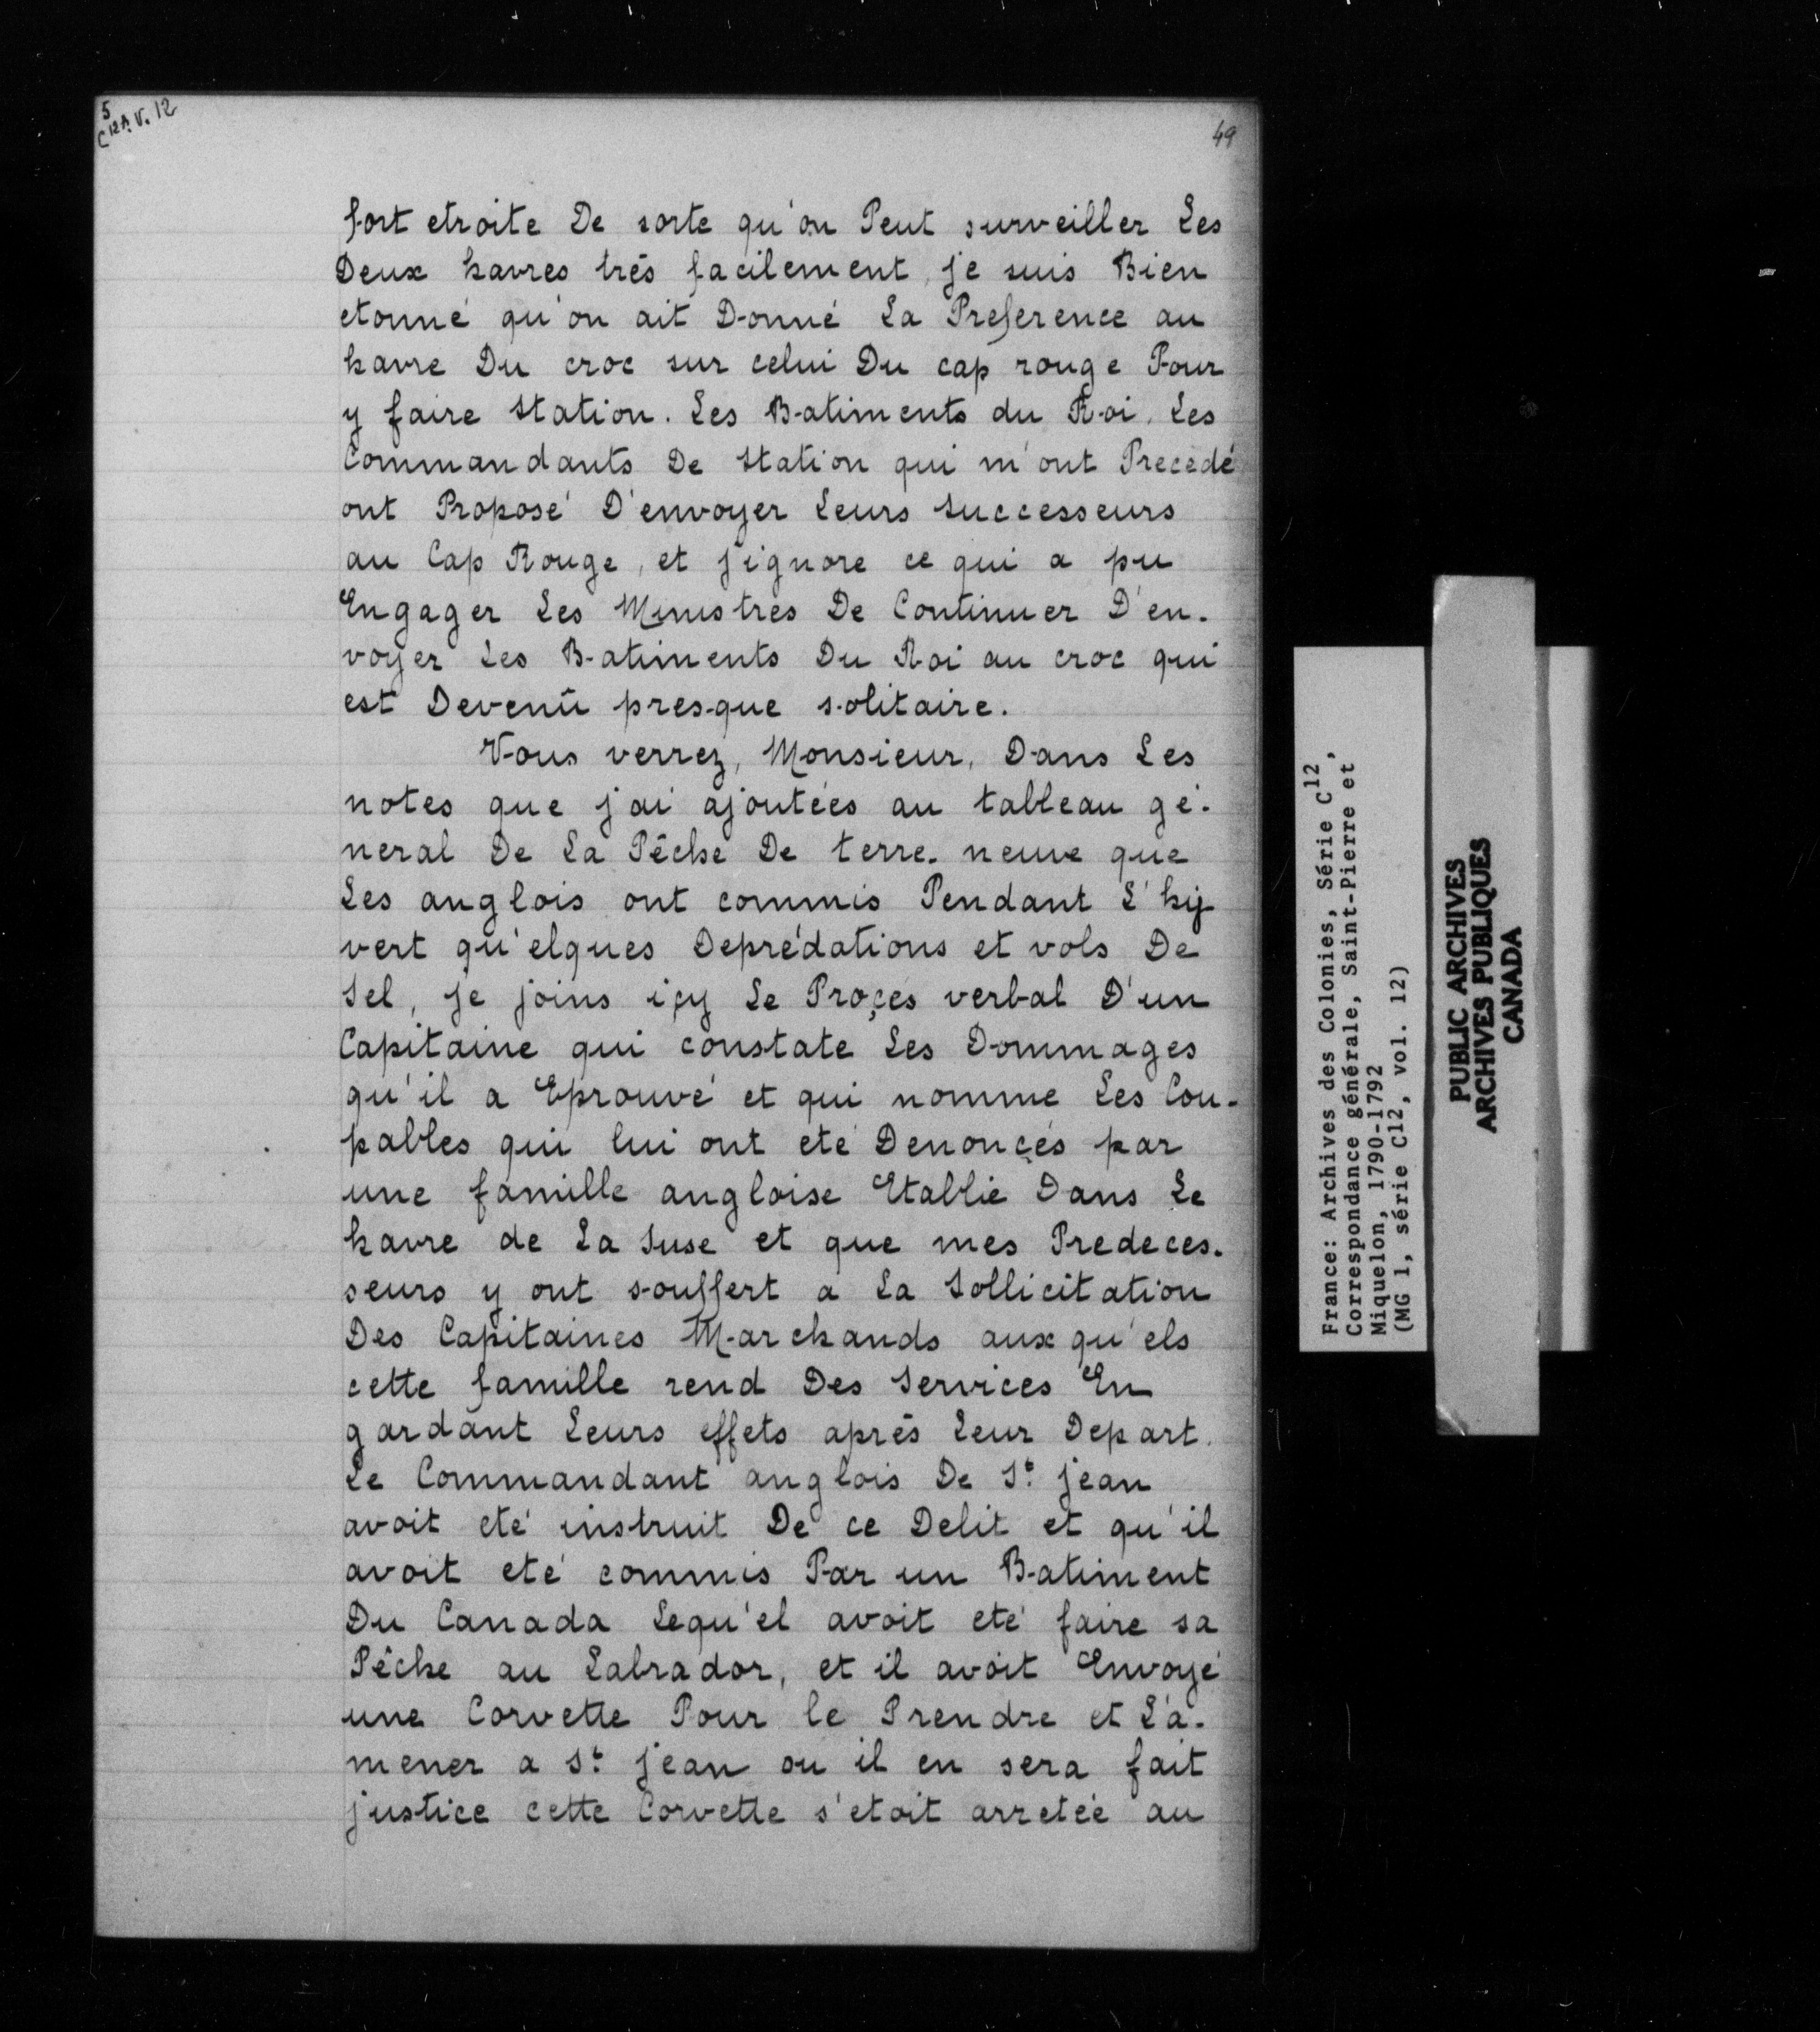 5
C12A. V. 12
49
fort etroite De sorte qu'on Peut surveiller Les
Deux havres trés facilement, je suis Bien
etonné qu'on ait Donné La Preference au
havre Du croc sur celui Du cap rouge Pour
y faire station. Les Batiments du Roi. Les
Commandants De station qui m'ont Precedé
ont Proposé D'envoyer Leurs successeurs
au Cap Rouge, et j'ignore ce qui a pu
Engager Les Ministres De Continuer D'en-
voyer Les Batiments Du Roi au croc qui
est Devenû presque solitaire.
Vous verrez, Monsieur, Dans Les
notes que j'ai ajoutées au tableau gé-
neral De La Pêche De terre-neuve que
Les anglois ont commis Pendant L'hy
vert qu'elques Deprédations et vols De
Sel, je joins içy Le Proçés verbal D'un
Capitaine qui constate Les Dommages
qu'il a Eprouvé et qui nomme Les Cou-
pables qui lui ont eté Denonçés par
une famille angloise Etablie Dans Le
havre de La Suse et que mes Predeces-
seurs y ont souffert a La Sollicitation
Des Capitaines Marchands auxqu'els
cette famille rend Des Services En
gardant Leurs effets aprés Leur Depart.
Le Commandant anglois De St. jean
avoit eté instruit De ce Delit et qu'il
avoit eté commis Par un Batiment
Du Canada Lequ'el avoit eté faire sa
Pêche au Labrador, et il avoit Envoyé
une Corvette Pour le Prendre et L'a-
mener a St. jean ou il en sera fait
justice cette Corvette s'etoit arretée au
France: Archives des Colonies, Série C12,
Correspondance générale, Saint-Pierre et
Miquelon, 1790-1792
(MG 1, série C12, vol. 12)
PUBLIC ARCHIVES
ARCHIVES PUBLIQUES
CANADA